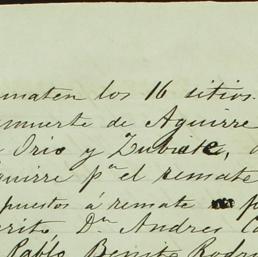 maten los 16 sitios.
muerte de Aguirre
Orio y Zubiate,
guirre pª el remate
puestos á remate
rito Dn Andres
Pablo Benito Rodri